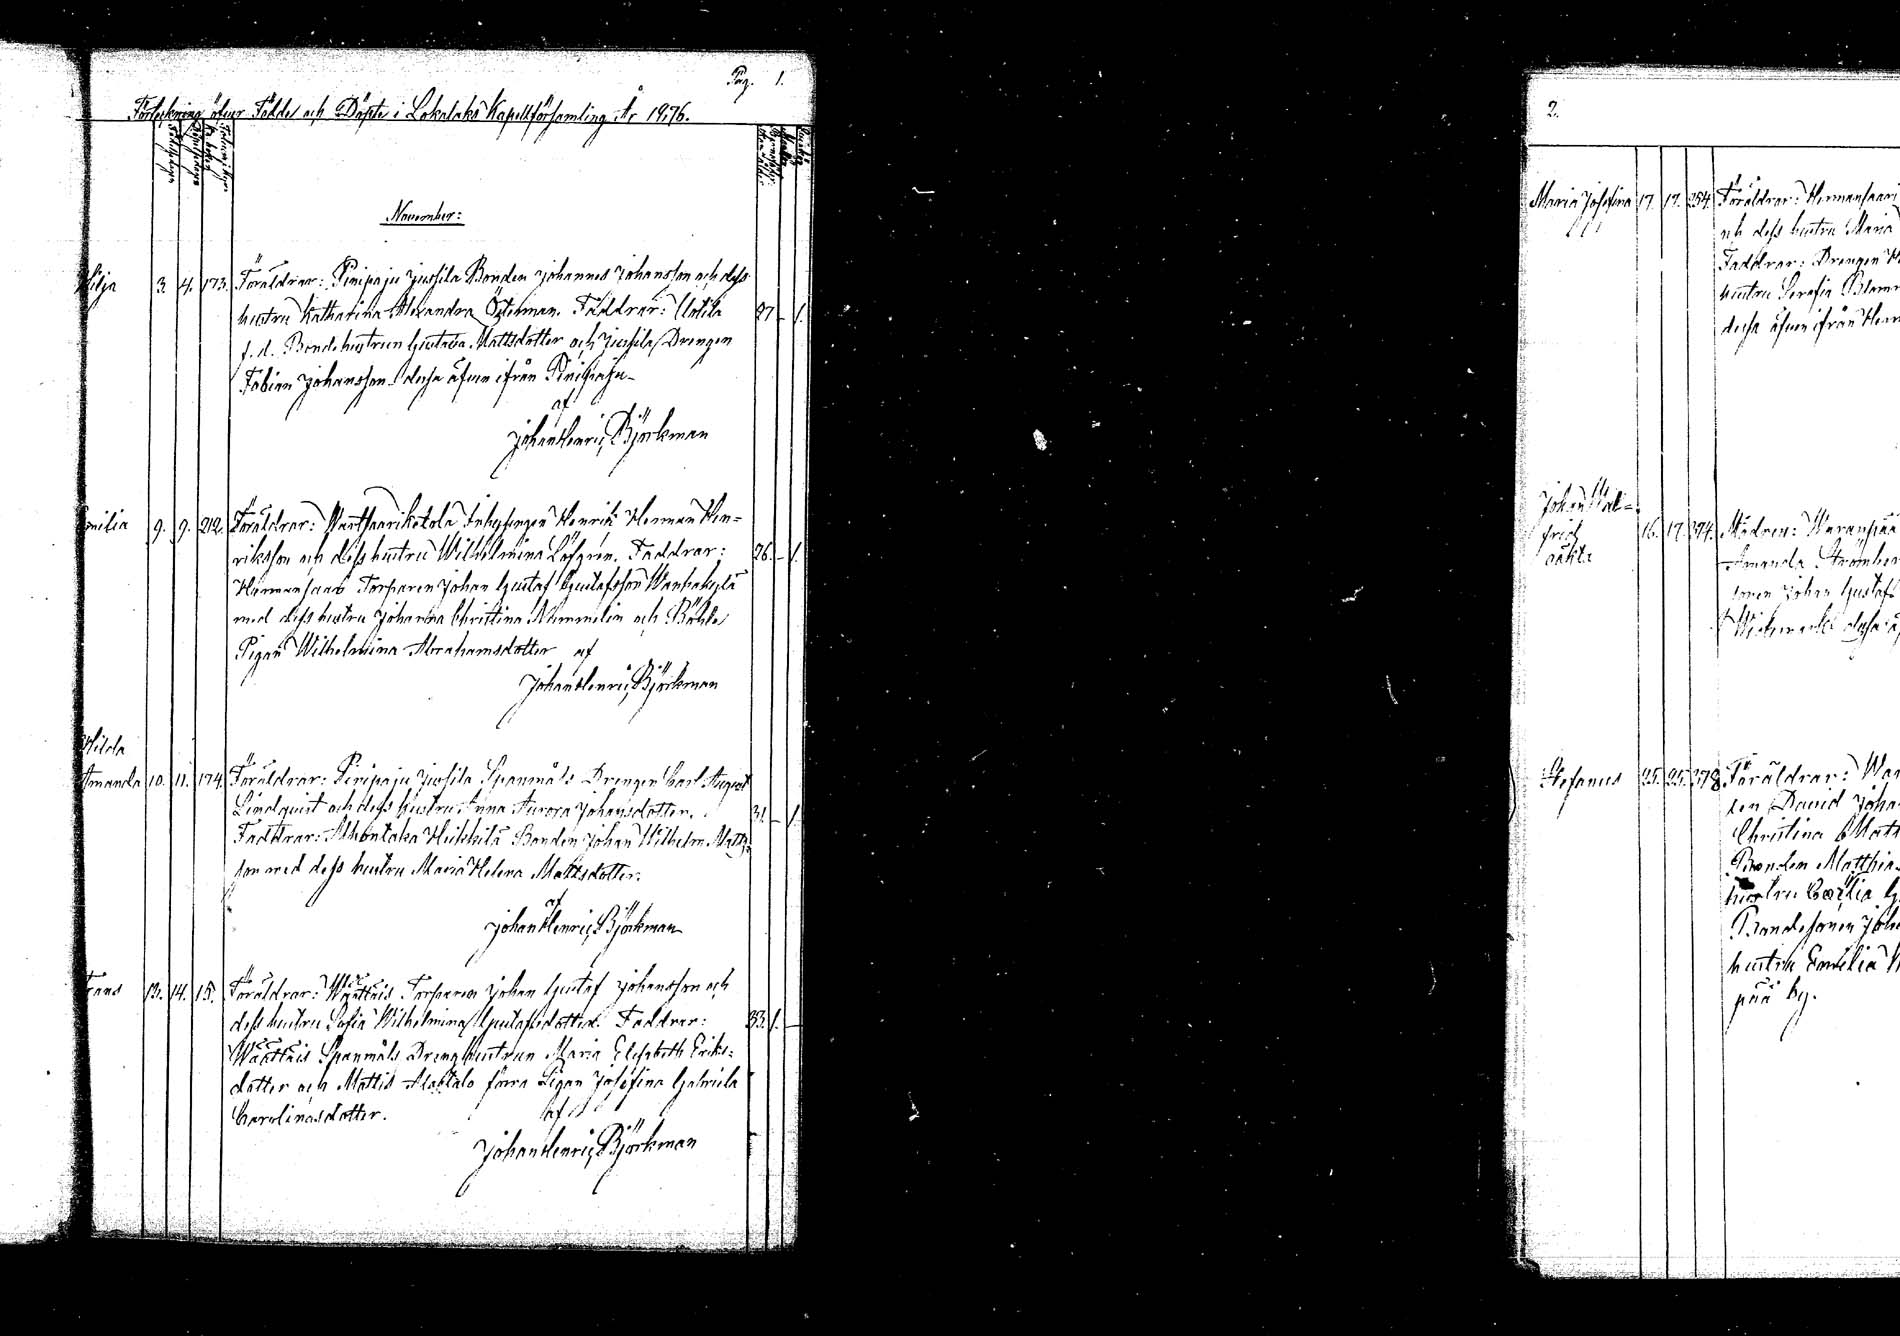 Pag. 1.
Förteckning öfver Födde och Döpte i Lokalaks Kapellförsamling År 1876.
November:
Hilja 3. 4. 173. Föräldrar: Pinipaju Jussila Bonden Johannes Johansson och dess
hustru Katharina Alexandra Österman. Faddrar: Uotila 27 – 1.
f. d. Bondehustrun Gustava Mattsdotter och Jussila Drengen
Fabian Johansson – dessa äfven ifrån Pinipaju –
af
Johan Henric Björkman
Emilia 9. 9. 212. Föräldrar: Inhysingen Henrik Herman Hen=
riksson och dess hustru Wilhelmina Löfgren. Faddrar: 26. – 1.
Hermansaari Torparen Johan Gustaf Gustafsson Wanhakylä
med dess hustru Johanna Christina Nummelin och Böhle
Pigan Wilhelmina Abrahamsdotter af
Johan Henric Björkman
Hilda
Amanda 10. 11. 174. Föräldrar: Pinipaju Jussila Spanmåls Drengen Carl August
Lindqvist och dess hustru Anna Aurora Johansdotter. 31. – 1.
Faddrar: Heikkilä Bonden Johan Wilhelm Matts=
son med dess hustru Maria Helena Mattsdotter.
af
Johan Henric Björkman
Frans 13. 14. 15. Föräldrar: Torparen Johan Gustaf Johansson och
dess hustru Sofia Wilhelmina Gustafsdotter. Faddrar: 33. 1. –
Spanmåls Drenghustrun Maria Elisabeth Eriks=
dotter och Mattis Alastalo förra Pigan Josefina Gabriela
Carolinasdotter. af
Johan Henric Björkman
2.
Maria Josefina 17. 17. 254. Föräldrar: Hermansaari
och dess hustru Maria
Faddrar: Drengen
hustru Serafia Blom
dessa äfven ifrån Herm
Johan Wal=
frid 16. 17. 374. Modren:
oäkta Amanda Strömber
sonen Johan Gustaf
dessa
Stefanus 25. 25. 378. Föräldrar:
sen David Joha
Christina Matt
Bonden Matthia
hustru Cecilia G
Bondesonen Joha
hustru Emilia
pää by.